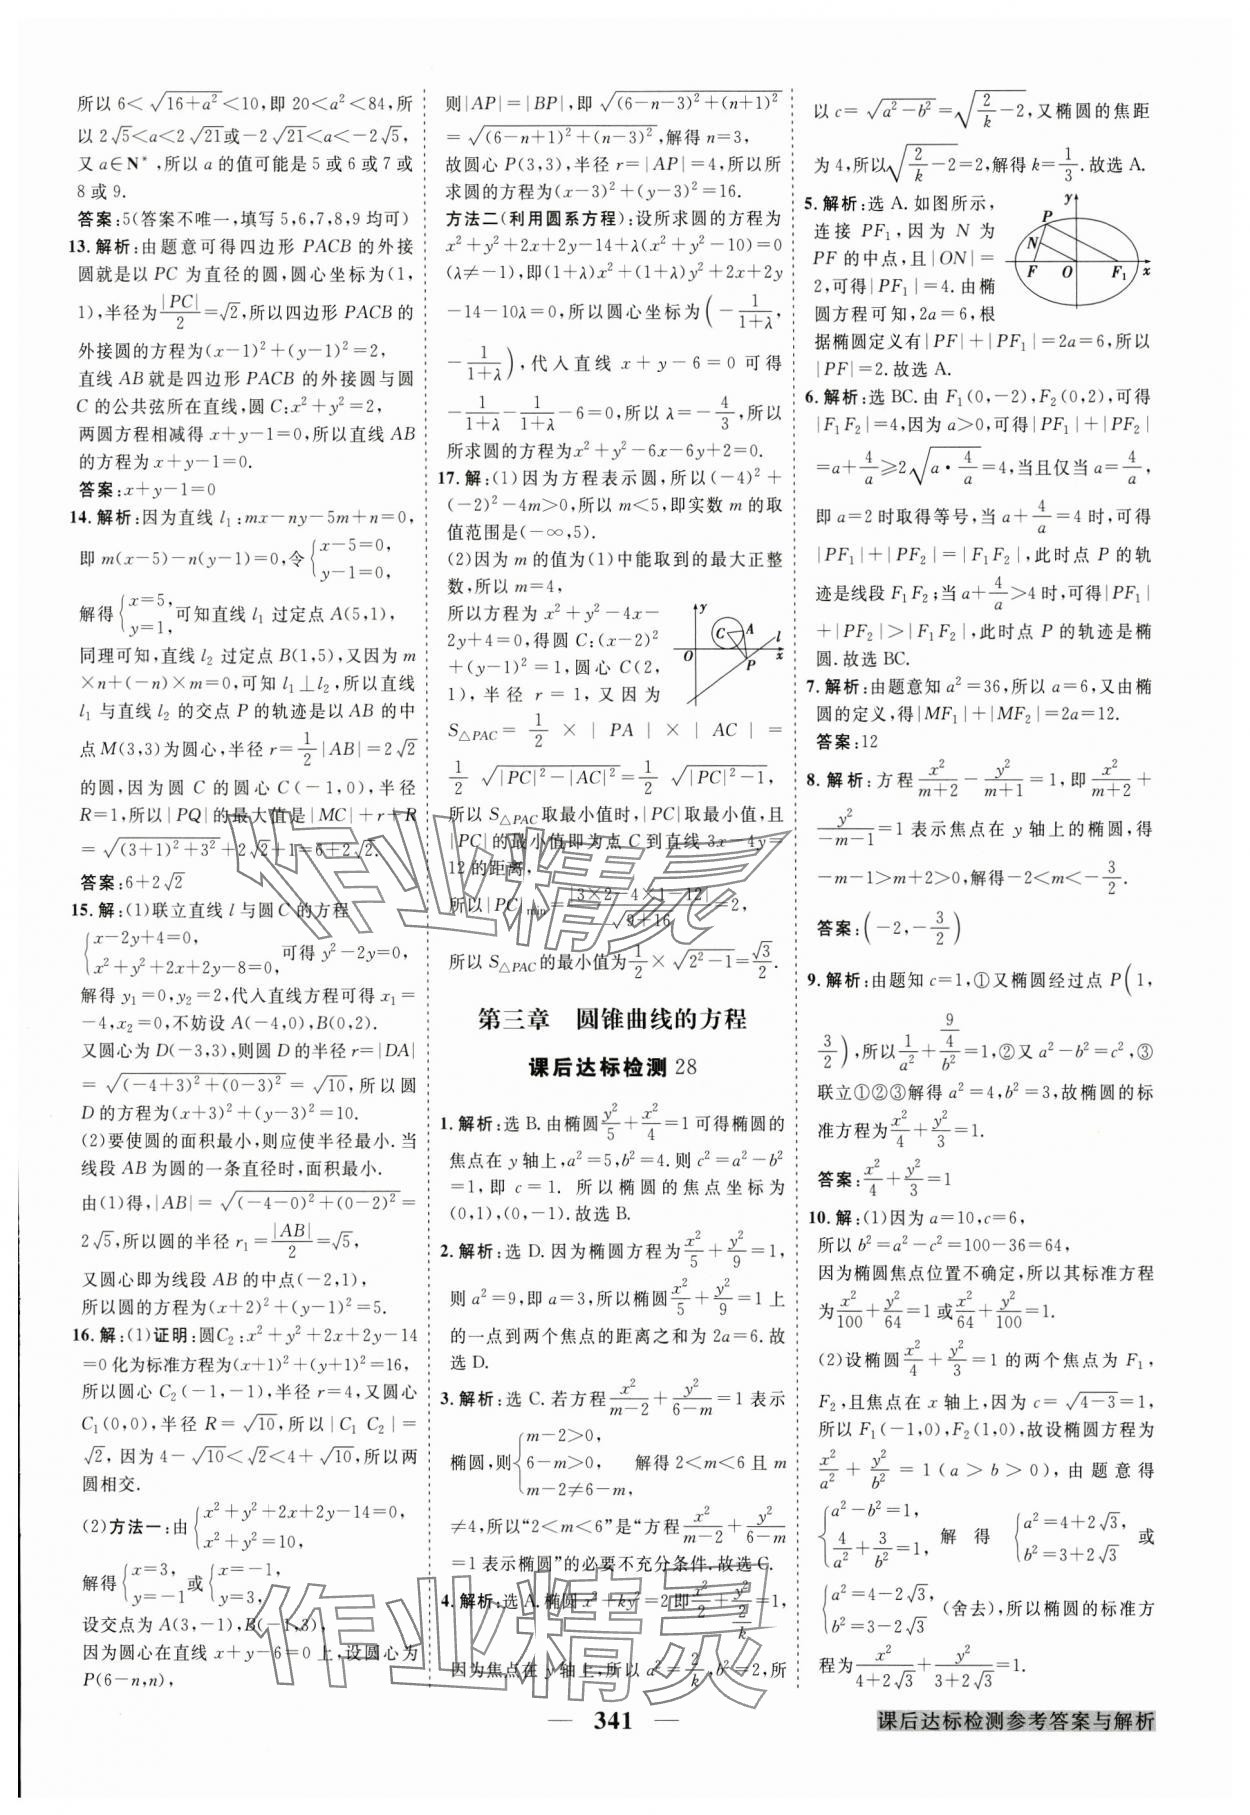 所以 6<√(16+a²)<10,即 20<a²<84,所
以 2√5<a<2√21或-2√21<a<-2√5,
又 a∈N*,所以 a 的值可能是 5 或 6 或 7 或
8 或 9.
答案:5(答案不唯一,填写 5,6,7,8,9 均可)
13. 解析:由题意可得四边形 PACB 的外接
圆就是以 PC 为直径的圆,圆心坐标为(1,
1),半径为|PC|/2=√2,所以四边形 PACB 的
外接圆的方程为(x-1)²+(y-1)²=2,
直线 AB 就是四边形 PACB 的外接圆与圆
C 的公共弦所在直线,圆 C:x²+y²=2,
两圆方程相减得 x+y-1=0,所以直线 AB
的方程为 x+y-1=0.
答案:x+y-1=0
14. 解析:因为直线 l₁:mx-ny-5m+n=0,
即 m(x-5)-n(y-1)=0,令{x-5=0, y-1=0,
解得{x=5, y=1,可知直线 l₁ 过定点 A(5,1),
同理可知,直线 l₂ 过定点 B(1,5),又因为 m
×n+(-n)×m=0,可知 l₁⊥l₂,所以直线
l₁ 与直线 l₂ 的交点 P 的轨迹是以 AB 的中
点 M(3,3)为圆心,半径 r=1/2|AB|=2√2
的圆,因为圆 C 的圆心 C(-1,0),半径
R=1,所以|PQ|的最大值是|MC|+r+R
=√((3+1)²+3²)+2√2+1=6+2√2.
答案:6+2√2
15. 解:(1)联立直线 l 与圆 C 的方程
{x-2y+4=0, x²+y²+2x+2y-8=0, 可得 y²-2y=0,
解得 y₁=0,y₂=2,代入直线方程可得 x₁=
-4,x₂=0,不妨设 A(-4,0),B(0,2),
又圆心为 D(-3,3),则圆 D 的半径 r=|DA|
=√((-4+3)²+(0-3)²)=√10,所以圆
D 的方程为(x+3)²+(y-3)²=10.
(2)要使圆的面积最小,则应使半径最小.当
线段 AB 为圆的一条直径时,面积最小.
由(1)得,|AB|=√((-4-0)²+(0-2)²)=
2√5,所以圆的半径 r₁=|AB|/2=√5,
又圆心即为线段 AB 的中点(-2,1),
所以圆的方程为(x+2)²+(y-1)²=5.
16. 解:(1)证明:圆C₂:x²+y²+2x+2y-14
=0 化为标准方程为(x+1)²+(y+1)²=16,
所以圆心 C₂(-1,-1),半径 r=4,又圆心
C₁(0,0),半径 R=√10,所以|C₁ C₂|=
√2,因为 4-√10<√2<4+√10,所以两
圆相交.
(2)方法一:由{x²+y²+2x+2y-14=0, x²+y²=10,
解得{x=3, y=-1或{x=-1, y=3,
设交点为 A(3,-1),B(-1,3),
因为圆心在直线 x+y-6=0 上,设圆心为
P(6-n,n),
则|AP|=|BP|,即√((6-n-3)²+(n+1)²)
=√((6-n+1)²+(n-3)²),解得 n=3,
故圆心 P(3,3),半径 r=|AP|=4,所以所
求圆的方程为(x-3)²+(y-3)²=16.
方法二(利用圆系方程):设所求圆的方程为
x²+y²+2x+2y-14+λ(x²+y²-10)=0
(λ≠-1),即(1+λ)x²+(1+λ)y²+2x+2y
-14-10λ=0,所以圆心坐标为(-1/(1+λ),
-1/(1+λ)),代入直线 x+y-6=0 可得
-1/(1+λ)-1/(1+λ)-6=0,所以 λ=-4/3,所以
所求圆的方程为x²+y²-6x-6y+2=0.
17. 解:(1)因为方程表示圆,所以(-4)²+
(-2)²-4m>0,所以 m<5,即实数 m 的取
值范围是(-∞,5).
(2)因为 m 的值为(1)中能取到的最大正整
数,所以 m=4,
所以方程为 x²+y²-4x-
2y+4=0,得圆 C:(x-2)²
+(y-1)²=1,圆心 C(2,
1),半径 r=1,又因为
y C A l O P x
S△PAC = 1/2 × |PA| × |AC| =
1/2 √(|PC|²-|AC|²)=1/2 √(|PC|²-1),
所以 S△PAC取最小值时,|PC|取最小值,且
|PC|的最小值即为点 C 到直线 3x-4y=
12 的距离,
所以|PC|min=|3×2-4×1-12|/√(9+16)=2,
所以 S△PAC的最小值为1/2×√(2²-1)=√3/2.
第三章 圆锥曲线的方程
课后达标检测 28
1. 解析:选 B.由椭圆y²/5+x²/4=1 可得椭圆的
焦点在 y 轴上,a²=5,b²=4.则 c²=a²-b²
=1,即 c=1. 所以椭圆的焦点坐标为
(0,1),(0,-1).故选 B.
2. 解析:选 D.因为椭圆方程为x²/5+y²/9=1,
则 a²=9,即 a=3,所以椭圆x²/5+y²/9=1 上
的一点到两个焦点的距离之和为 2a=6.故
选 D.
3. 解析:选 C.若方程x²/(m-2)+y²/(6-m)=1 表示
椭圆,则{m-2>0, 6-m>0, m-2≠6-m, 解得 2<m<6 且 m
≠4,所以“2<m<6”是“方程x²/(m-2)+y²/(6-m)
=1 表示椭圆”的必要不充分条件.故选 C.
4. 解析:选 A.椭圆 x²+ky²=2 即x²/2+y²/(2/k)=1,
因为焦点在 y 轴上,所以 a²=2/k,b²=2,所
以 c=√(a²-b²)=√(2/k-2),又椭圆的焦距
为 4,所以√(2/k-2)=2,解得 k=1/3.故选 A.
5. 解析:选 A.如图所示,
连接 PF₁,因为 N 为
PF 的中点,且|ON|=
2,可得|PF₁|=4.由椭
圆方程可知,2a=6,根
y P N F O F₁ x
据椭圆定义有|PF|+|PF₁|=2a=6,所以
|PF|=2.故选 A.
6. 解析:选 BC.由 F₁(0,-2),F₂(0,2),可得
|F₁F₂|=4,因为 a>0,可得|PF₁|+|PF₂|
=a+4/a≥2√(a·4/a)=4,当且仅当 a=4/a,
即 a=2 时取得等号,当 a+4/a=4 时,可得
|PF₁|+|PF₂|=|F₁F₂|,此时点 P 的轨
迹是线段 F₁F₂;当 a+4/a>4 时,可得|PF₁|
+|PF₂|>|F₁F₂|,此时点 P 的轨迹是椭
圆.故选 BC.
7. 解析:由题意知 a²=36,所以 a=6,又由椭
圆的定义,得|MF₁|+|MF₂|=2a=12.
答案:12
8. 解析:方程x²/(m+2)-y²/(m+1)=1,即x²/(m+2)+
y²/(-m-1)=1 表示焦点在 y 轴上的椭圆,得
-m-1>m+2>0,解得-2<m<-3/2.
答案:(-2,-3/2)
9. 解析:由题知 c=1,①又椭圆经过点 P(1,
3/2),所以1/a²+(9/4)/b²=1,②又 a²-b²=c²,③
联立①②③解得 a²=4,b²=3,故椭圆的标
准方程为x²/4+y²/3=1.
答案:x²/4+y²/3=1
10. 解:(1)因为 a=10,c=6,
所以 b²=a²-c²=100-36=64,
因为椭圆焦点位置不确定,所以其标准方程
为x²/100+y²/64=1 或x²/64+y²/100=1.
(2)设椭圆x²/4+y²/3=1 的两个焦点为 F₁,
F₂,且焦点在 x 轴上,因为 c=√(4-3)=1,
所以 F₁(-1,0),F₂(1,0),故设椭圆方程为
x²/a²+y²/b²=1(a>b>0),由题意得
{a²-b²=1, 4/a²+3/b²=1, 解得 {a²=4+2√3, b²=3+2√3 或
{a²=4-2√3, b²=3-2√3 (舍去),所以椭圆的标准方
程为x²/(4+2√3)+y²/(3+2√3)=1.
作业精灵
作业精灵
— 341 —
课后达标检测参考答案与解析